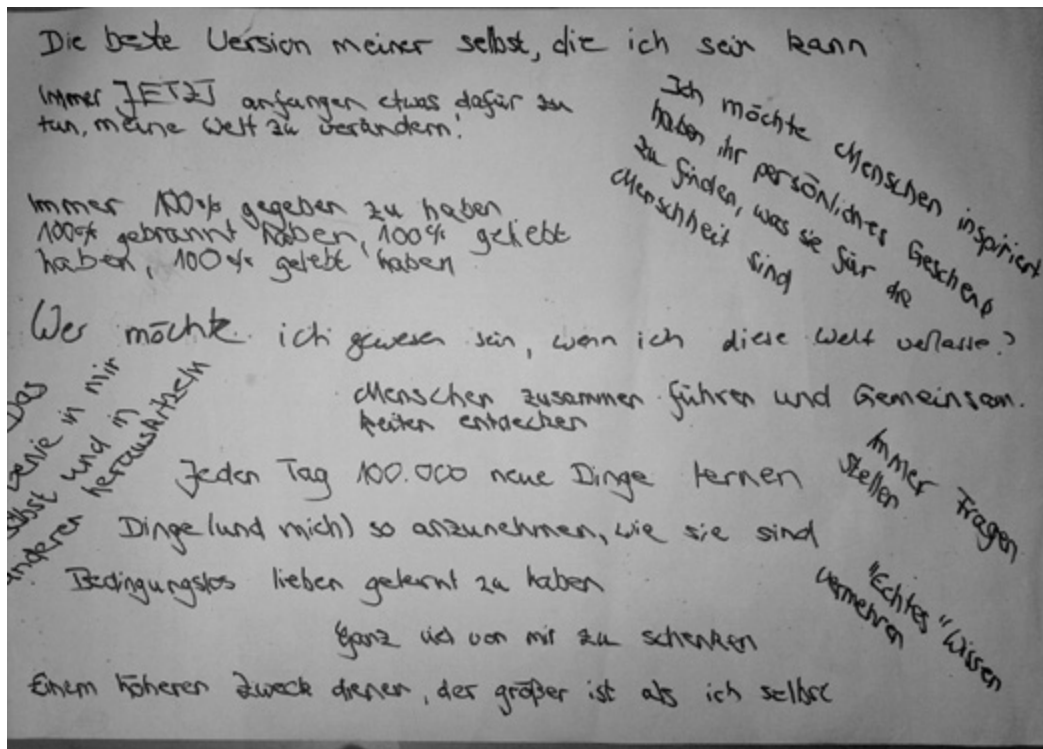 Die beste Version meiner selbst, die ich sein kann
Immer JETZT anfangen etwas dafür zu
tun, meine Welt zu verändern!
Ich möchte Menschen inspiriert
haben ihr persönliches Geschenk
zu finden, was sie für die
Menschheit sind
Immer 100% gegeben zu haben
100% gebrannt haben, 100% geliebt
haben, 100% gelebt haben
Wer möchte ich gewesen sein, wenn ich diese Welt verlasse?
Das
Genie in mir
selbst und in
anderen herauskitzeln
Menschen zusammen führen und Gemeinsam.
keiten entdecken
Immer Fragen
stellen
Jeden Tag 100.000 neue Dinge lernen
Dinge (und mich) so anzunehmen, wie sie sind
Bedingungslos lieben gelernt zu haben
"Echtes" Wissen
vermehren
Ganz viel von mir zu schenken
Einem höheren Zweck dienen, der größer ist als ich selbst